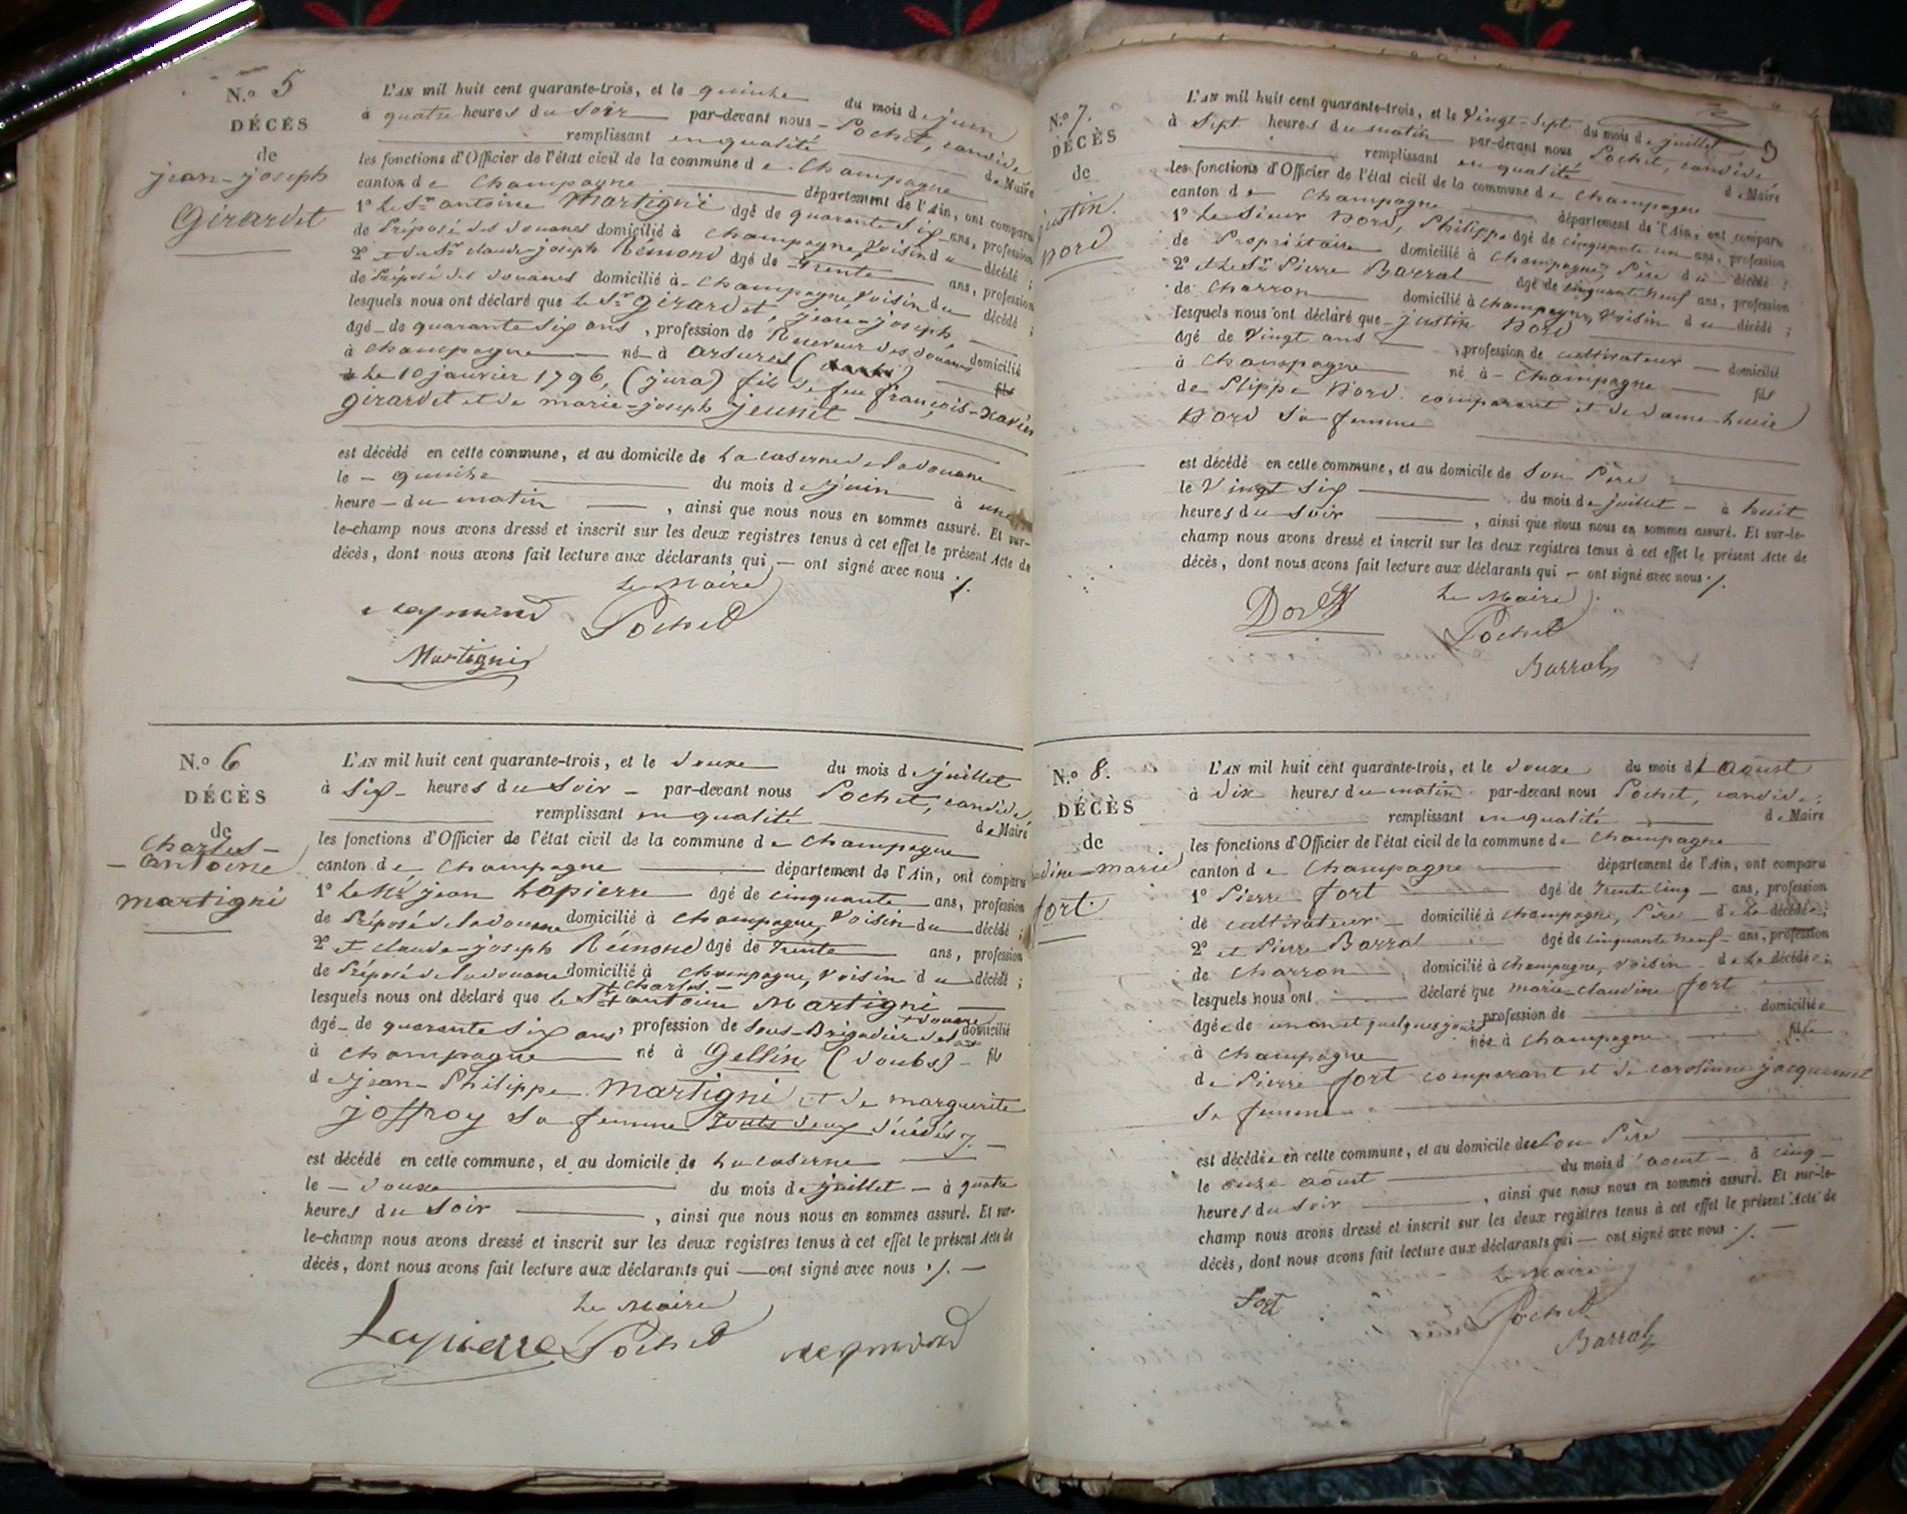 N.º 5
DÉCÈS
de
jean-joseph
Girardet
L'AN mil huit cent quarante-trois, et le quinze du mois de juin
à quatre heures du soir par-devant nous Pochet, candide
remplissant en qualité de Maire
les fonctions d'Officier de l'état civil de la commune de Champagne
canton de Champagne département de l'Ain, ont comparu
1º le Sr antoine Martigni âgé de quarante six ans, profession
de Préposé des douanes domicilié à Champagne, voisin du décédé ;
2º et du Sr claude-joseph Rémond âgé de trente ans, profession
de Préposé des douanes domicilié à Champagne, voisin du décédé ;
lesquels nous ont déclaré que le Sr Girardet, jean-joseph
âgé de quarante six ans, profession de Receveur des douanes domicilié
à Champagne né à arsures ( ) fils
le 10 janvier 1796, (jura) fils de feu françois-Xavier
girardet et de marie-joseph jeunet
est décédé en cette commune, et au domicile de La caserne de la douane
le quinze du mois de juin à une
heure du matin , ainsi que nous nous en sommes assuré. Et sur-
le-champ nous avons dressé et inscrit sur les deux registres tenus à cet effet le présent Acte de
décès, dont nous avons fait lecture aux déclarants qui ont signé avec nous ./.
Le Maire
Reymond Pochet
Martigni
N.º 6
DÉCÈS
de
Charles-
antoine
martigni
L'AN mil huit cent quarante-trois, et le douze du mois de juillet
à Six heures du soir par-devant nous Pochet, candide,
remplissant en qualité de Maire
les fonctions d'Officier de l'état civil de la commune de Champagne
canton de Champagne département de l'Ain, ont comparu
1º Le Mr jean Lapierre âgé de cinquante ans, profession
de Préposé de la douane domicilié à Champagne, voisin du décédé ;
2º et claude-joseph Rémond âgé de trente ans, profession
de Préposé de la douane domicilié à Champagne, voisin du décédé ;
+ Charles-
lesquels nous ont déclaré que le Sr + antoine Martigni
+ douane
âgé de quarante six ans, profession de Sous-Brigadier de la + domicilié
à Champagne né à Gellin (doubs) fils
de jean-Philippe Martigni et de marguerite
joffroy sa femme Touts deux décédés ./.
est décédé en cette commune, et au domicile de La caserne
le douze du mois de juillet à quatre
heures du soir , ainsi que nous nous en sommes assuré. Et sur-
le-champ nous avons dressé et inscrit sur les deux registres tenus à cet effet le présent Acte de
décès, dont nous avons fait lecture aux déclarants qui ont signé avec nous ./.
Le Maire
Lapierre Pochet Reymond
N.º 7.
DÉCÈS
de
justin.
Dord
L'AN mil huit cent quarante-trois, et le Vingt-sept du mois de juillet
à Sept heures du matin par-devant nous Pochet, candide
remplissant en qualité de Maire
les fonctions d'Officier de l'état civil de la commune de Champagne
canton de Champagne département de l'Ain, ont comparu
1º Le Sieur Dord, Philippe âgé de cinquante un ans, profession
de Propriétaire domicilié à Champagne, Père du décédé ;
2º et le Sr Pierre Barral âgé de cinquante neuf ans, profession
de Charron domicilié à Champagne, voisin du décédé ;
lesquels nous ont déclaré que justin Dord
âgé de Vingt ans , profession de cultivateur domicilié
à Champagne né à Champagne fils
de Plippe Dord comparant et de dame Lucie
Dord sa femme
est décédé en cette commune, et au domicile de Son Père
le Vingt six du mois de juillet à huit
heures du soir , ainsi que nous nous en sommes assuré. Et sur-le-
champ nous avons dressé et inscrit sur les deux registres tenus à cet effet le présent Acte de
décès, dont nous avons fait lecture aux déclarants qui ont signé avec nous ./.
Le Maire
Dord Pochet
Barral
N.º 8.
DÉCÈS
de
dine-marie
fort.
L'AN mil huit cent quarante-trois, et le douze du mois d'août
à dix heures du matin par-devant nous Pochet, candide,
remplissant en qualité de Maire
les fonctions d'Officier de l'état civil de la commune de Champagne
canton de Champagne département de l'Ain, ont comparu
1º Pierre fort âgé de trente cinq ans, profession
de cultivateur domicilié à Champagne, Père de la décédée ;
2º et Pierre Barral âgé de cinquante neuf ans, profession
de Charron domicilié à Champagne, voisin de la décédée ;
lesquels nous ont déclaré que marie-claudine fort
âgée de un an et quelques jours, profession de domiciliée
à Champagne née à Champagne fille
de Pierre fort comparant et de caroline jacquemet
sa femme
est décédée en cette commune, et au domicile de Son Père
le onze août du mois d'août à cinq
heures du soir , ainsi que nous nous en sommes assuré. Et sur-le-
champ nous avons dressé et inscrit sur les deux registres tenus à cet effet le présent Acte de
décès, dont nous avons fait lecture aux déclarants qui ont signé avec nous ./.
Le Maire
Fort Pochet
Barral